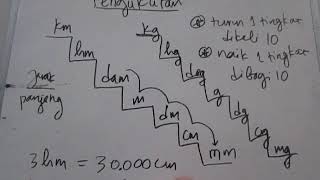 Pengukuran
km
hm
dam
m
dm
cm
mm
kg
hg
dag
g
dg
cg
mg
* turun 1 tingkat
dikali 10
* naik 1 tingkat
dibagi 10
panjang
3 hm = 30.000 cm